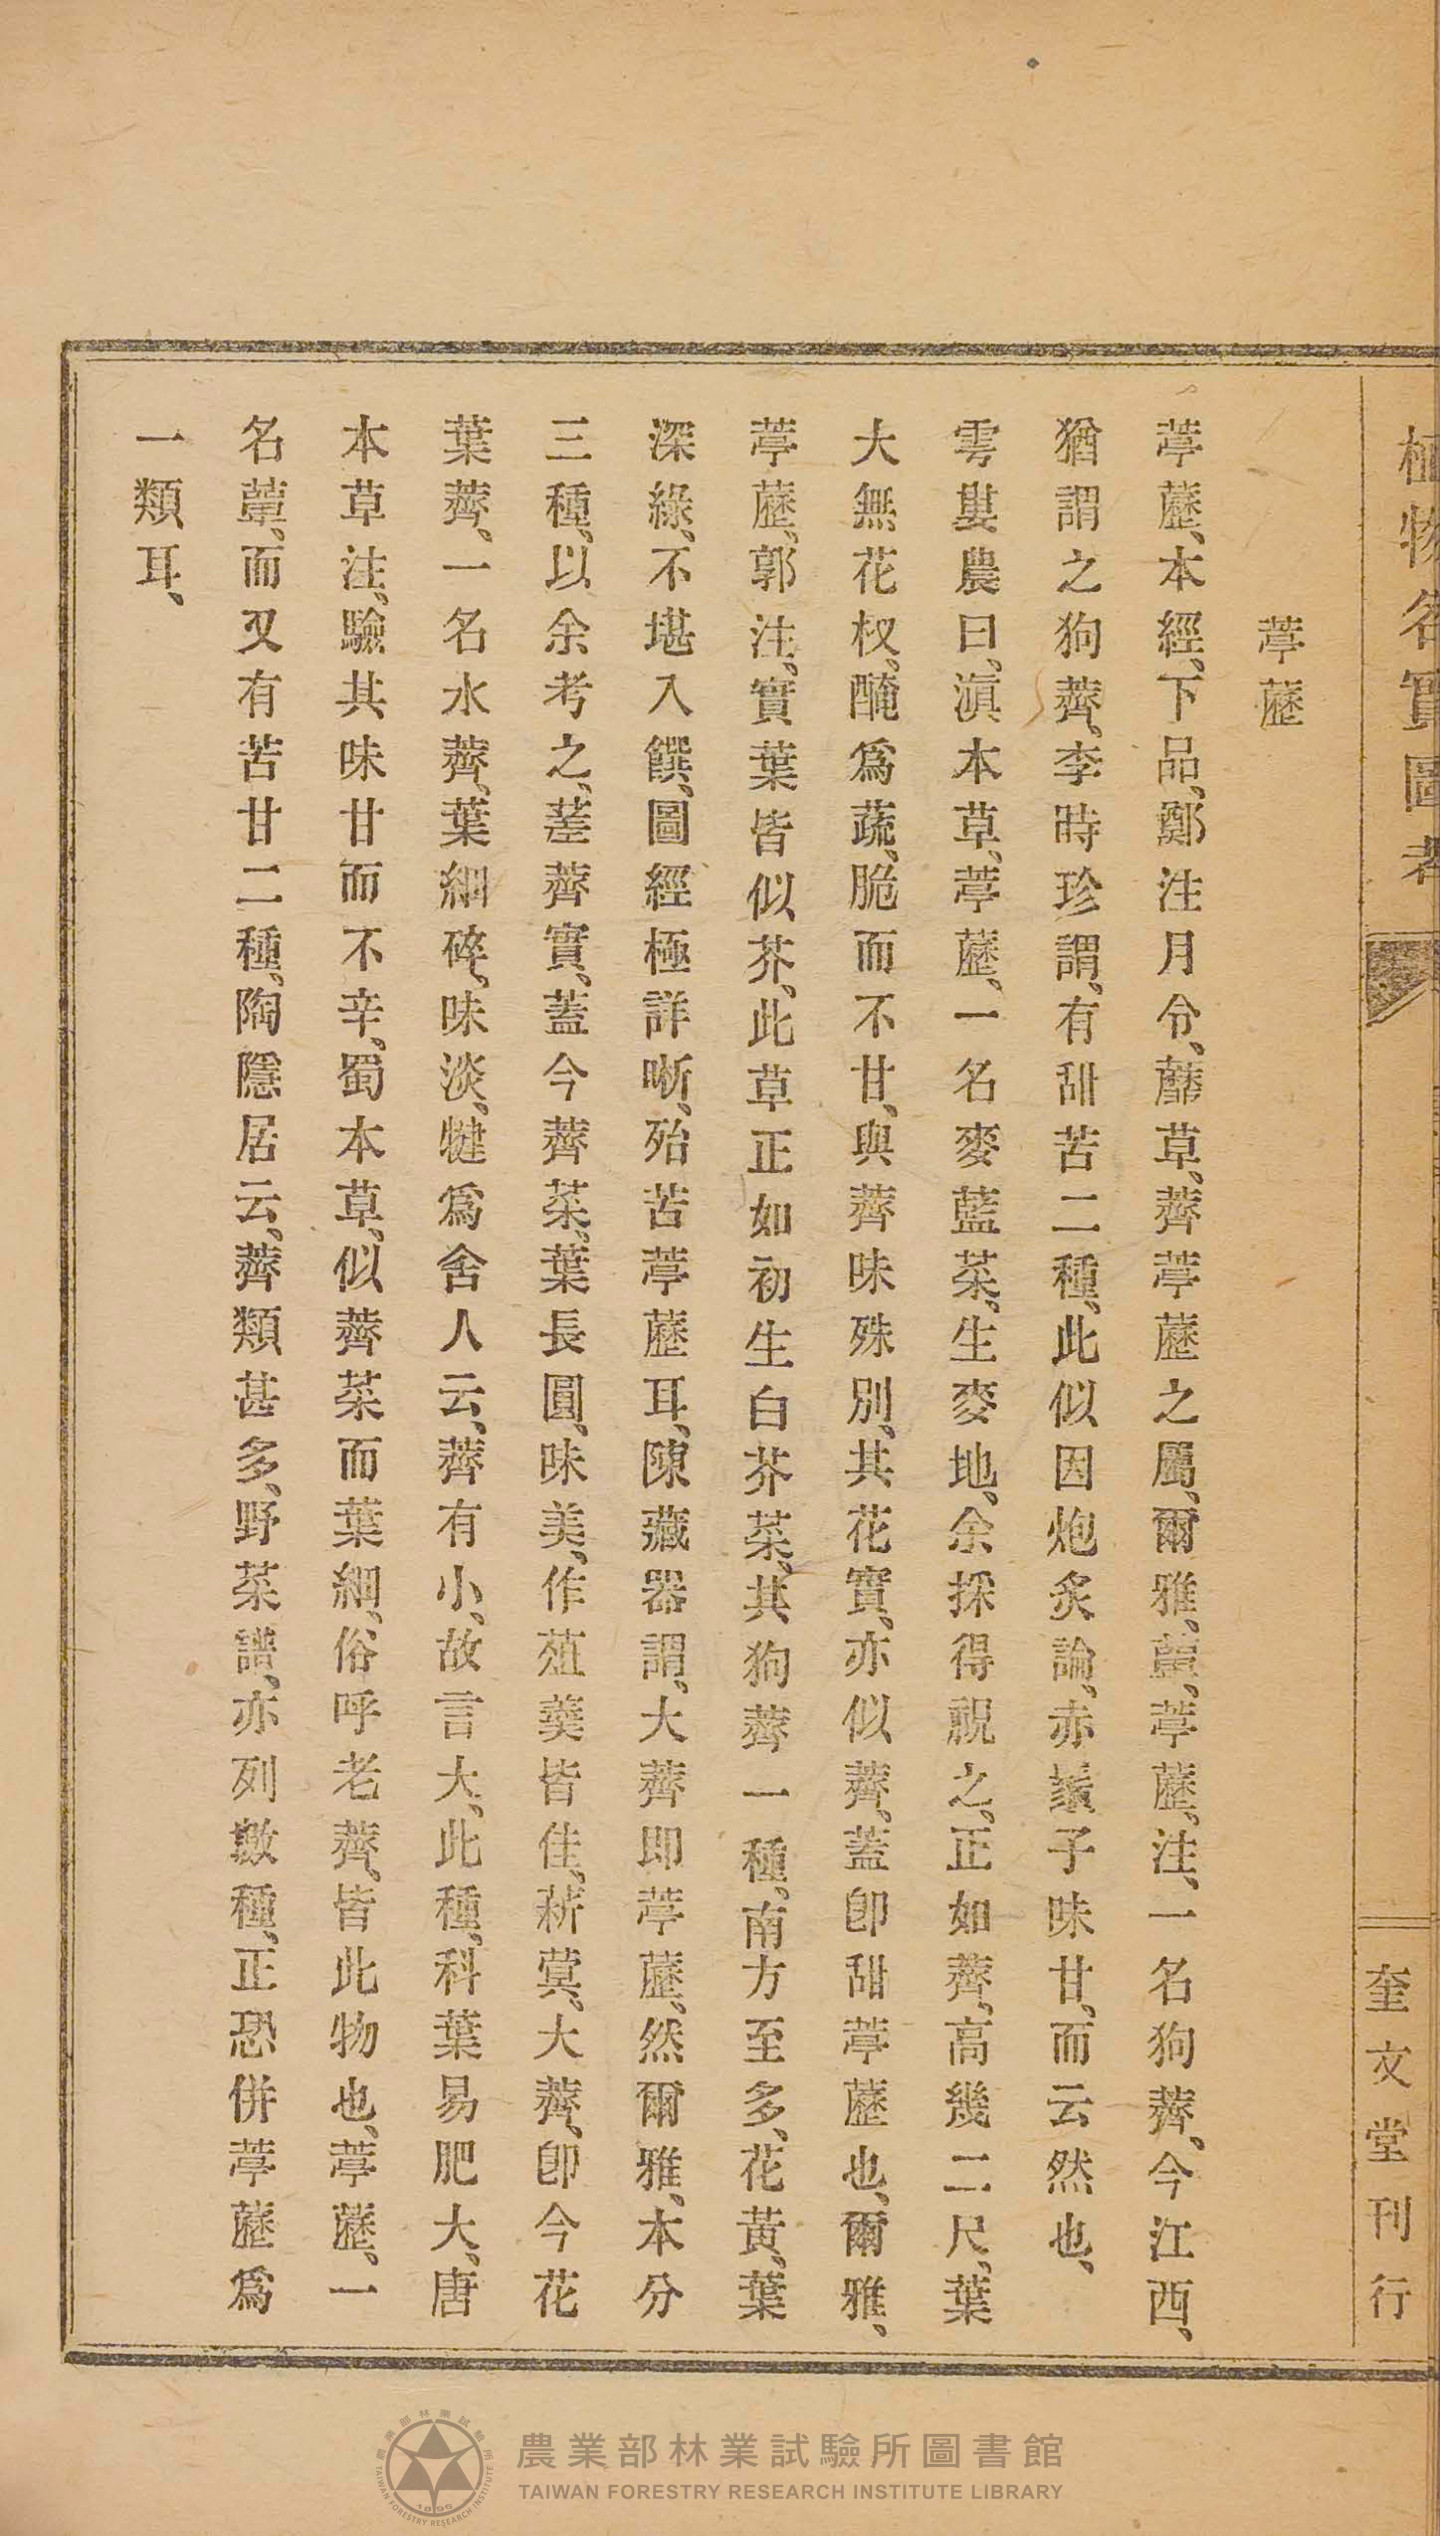 植物名實圖考
奎文堂刊行
葶藶
葶藶、本經、下品、鄭注月令、蘼草、薺葶藶之屬、爾雅、蕇、葶藶、注、一名狗薺、今江西、
猶謂之狗薺、李時珍謂、有甜苦二種、此似因炮炙論、赤鬚子味甘、而云然也、
雩婁農曰、滇本草、葶藶、一名麥藍菜、生麥地、余採得視之、正如薺、高幾二尺、葉
大無花杈、醃爲蔬、脆而不甘、與薺味殊別、其花實、亦似薺、蓋卽甜葶藶也、爾雅、
葶藶、郭注、實葉皆似芥、此草正如初生白芥菜、其狗薺一種、南方至多、花黃、葉
深綠、不堪入饌、圖經極詳晰、殆苦葶藶耳、陳藏器謂、大薺即葶藶、然爾雅、本分
三種、以余考之、蒫薺實、蓋今薺菜、葉長圓、味美、作葅羹皆佳、菥蓂、大薺、卽今花
葉薺、一名水薺、葉細碎、味淡、犍爲舍人云、薺有小、故言大、此種、科葉易肥大、唐
本草注、驗其味甘而不辛、蜀本草、似薺菜而葉細、俗呼老薺、皆此物也、葶藶、一
名蕇、而又有苦甘二種、陶隱居云、薺類甚多、野菜譜、亦列數種、正恐併葶藶爲
一類耳、
農業部林業試驗所圖書館
TAIWAN FORESTRY RESEARCH INSTITUTE LIBRARY
農業部林業試驗所
TAIWAN FORESTRY RESEARCH INSTITUTE
1895